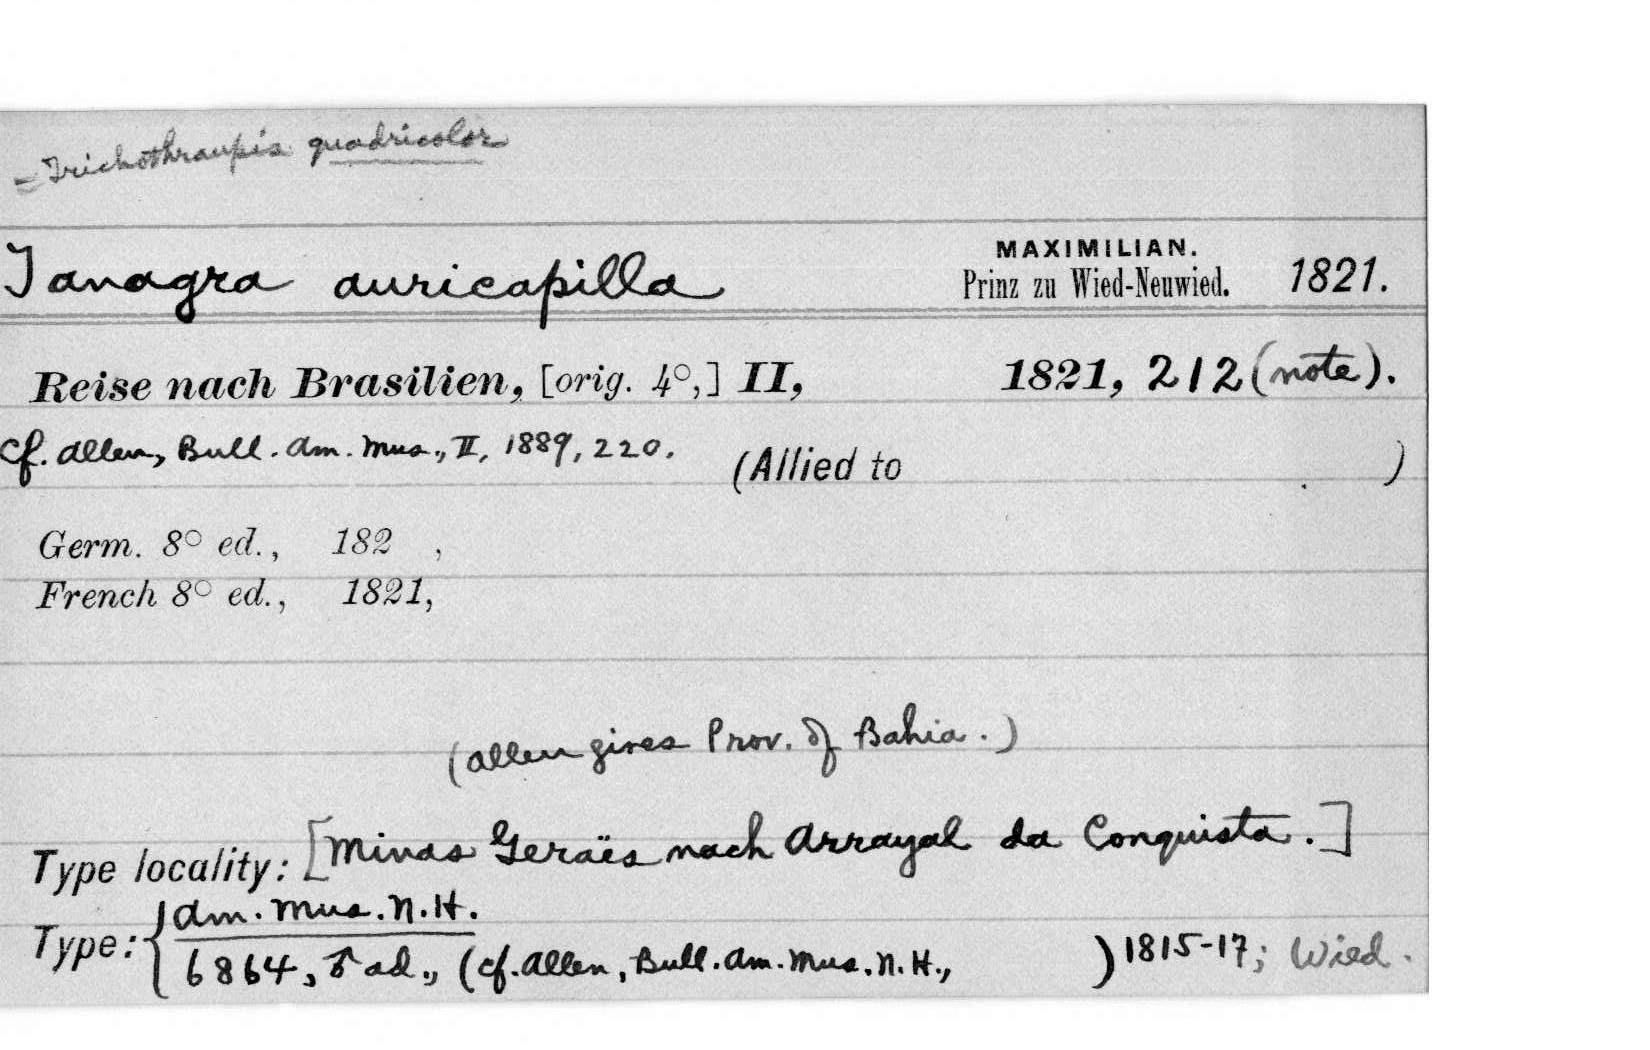 = Trichothraupis quadricolor
Tanagra auricapilla MAXIMILIAN. Prinz zu Wied-Neuwied. 1821.
Reise nach Brasilien, [orig. 4°,] II, 1821, 212 (note).
Cf. Allen, Bull. Am. Mus., II, 1889, 220. (Allied to )
Germ. 8° ed., 182 ,
French 8° ed., 1821,
(Allen gives Prov. of Bahia.)
Type locality: [Minas Geraës nach Arrayal da Conquista.]
Type: { Am. Mus. N. H.
6864, ♂ ad., (cf. Allen, Bull. Am. Mus. N. H., ) 1815-17; Wied.